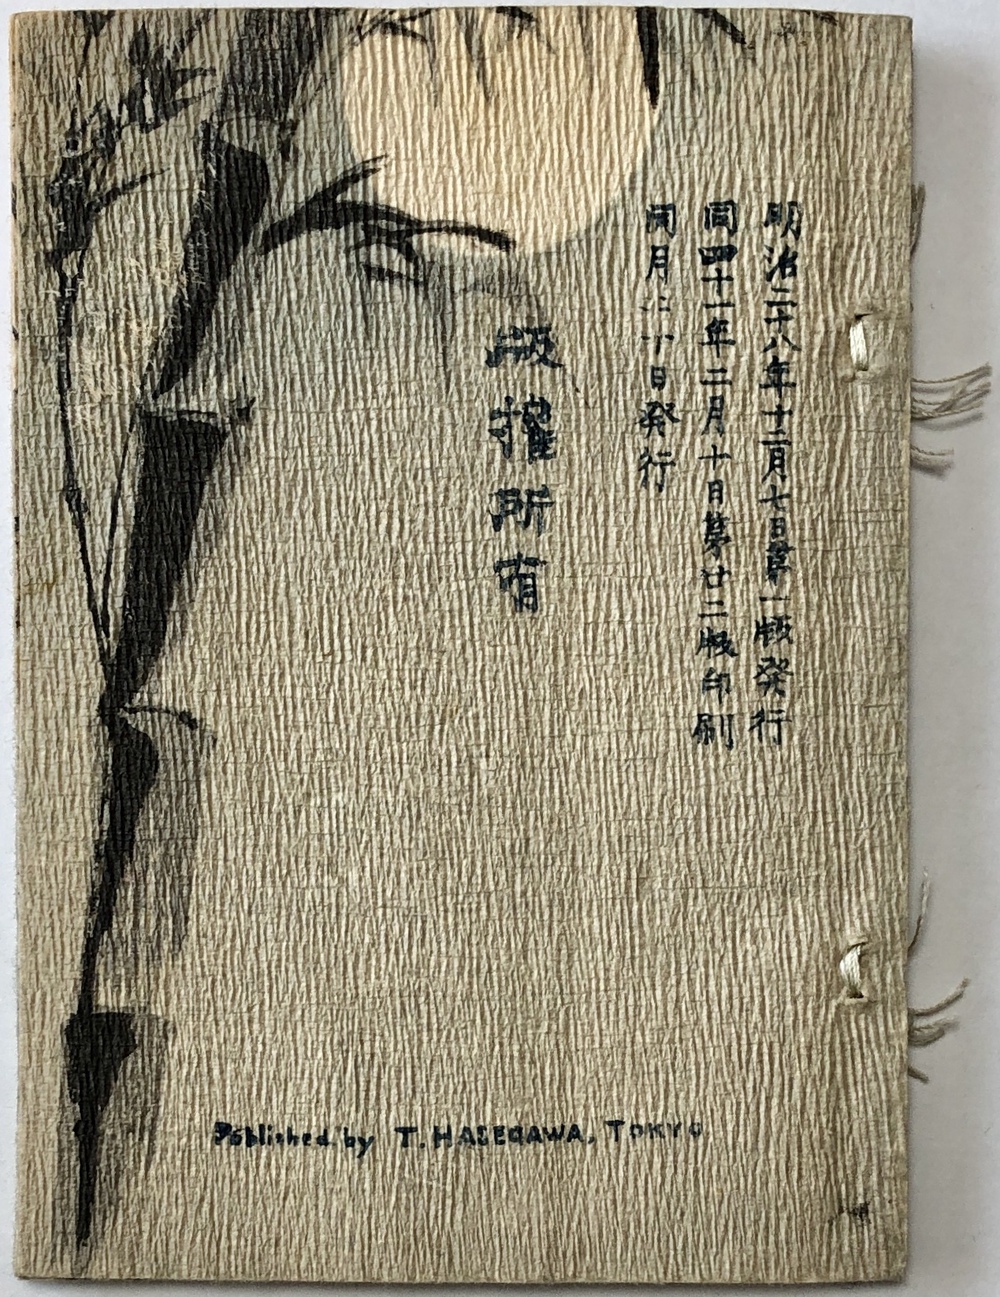 明治二十八年十二月七日第一版発行
同四十一年二月十日第廿二版印刷
同月二十日発行
版權所有
Published by T. HASEGAWA, TOKYO